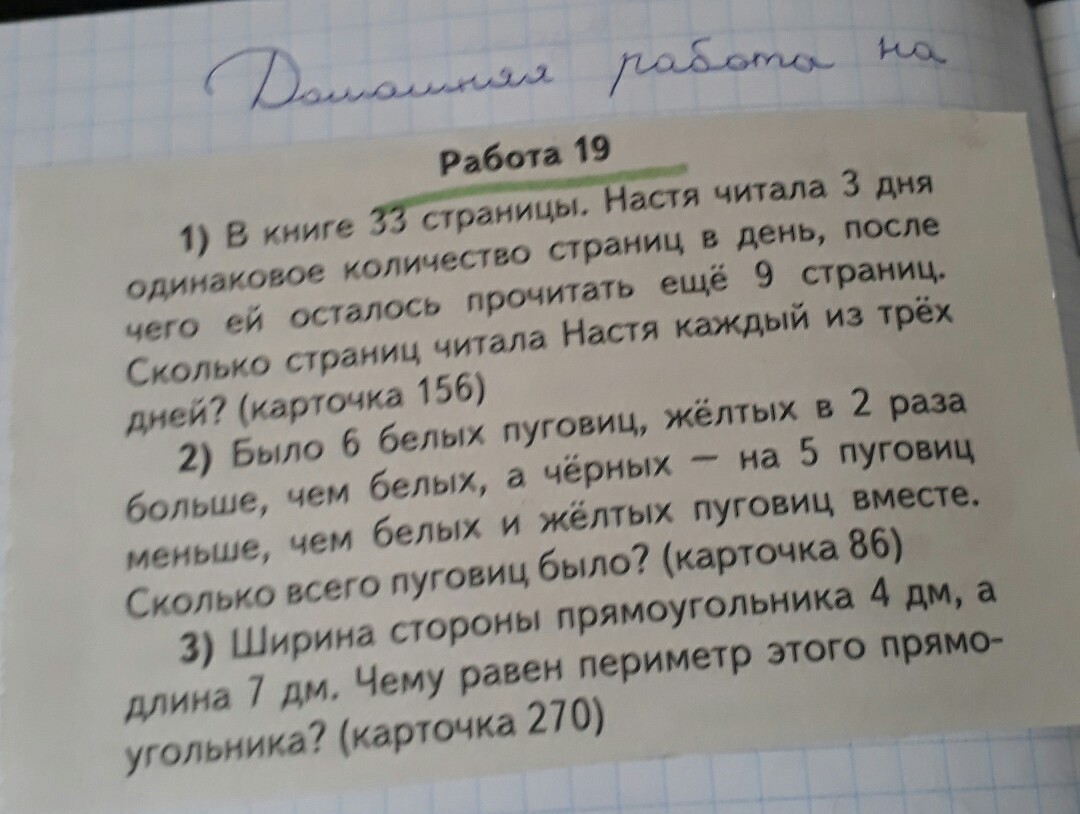 Домашняя работа на
Работа 19
1) В книге 33 страницы. Настя читала 3 дня
одинаковое количество страниц в день, после
чего ей осталось прочитать ещё 9 страниц.
Сколько страниц читала Настя каждый из трёх
дней? (карточка 156)
2) Было 6 белых пуговиц, жёлтых в 2 раза
больше, чем белых, а чёрных — на 5 пуговиц
меньше, чем белых и жёлтых пуговиц вместе.
Сколько всего пуговиц было? (карточка 86)
3) Ширина стороны прямоугольника 4 дм, а
длина 7 дм. Чему равен периметр этого прямо-
угольника? (карточка 270)